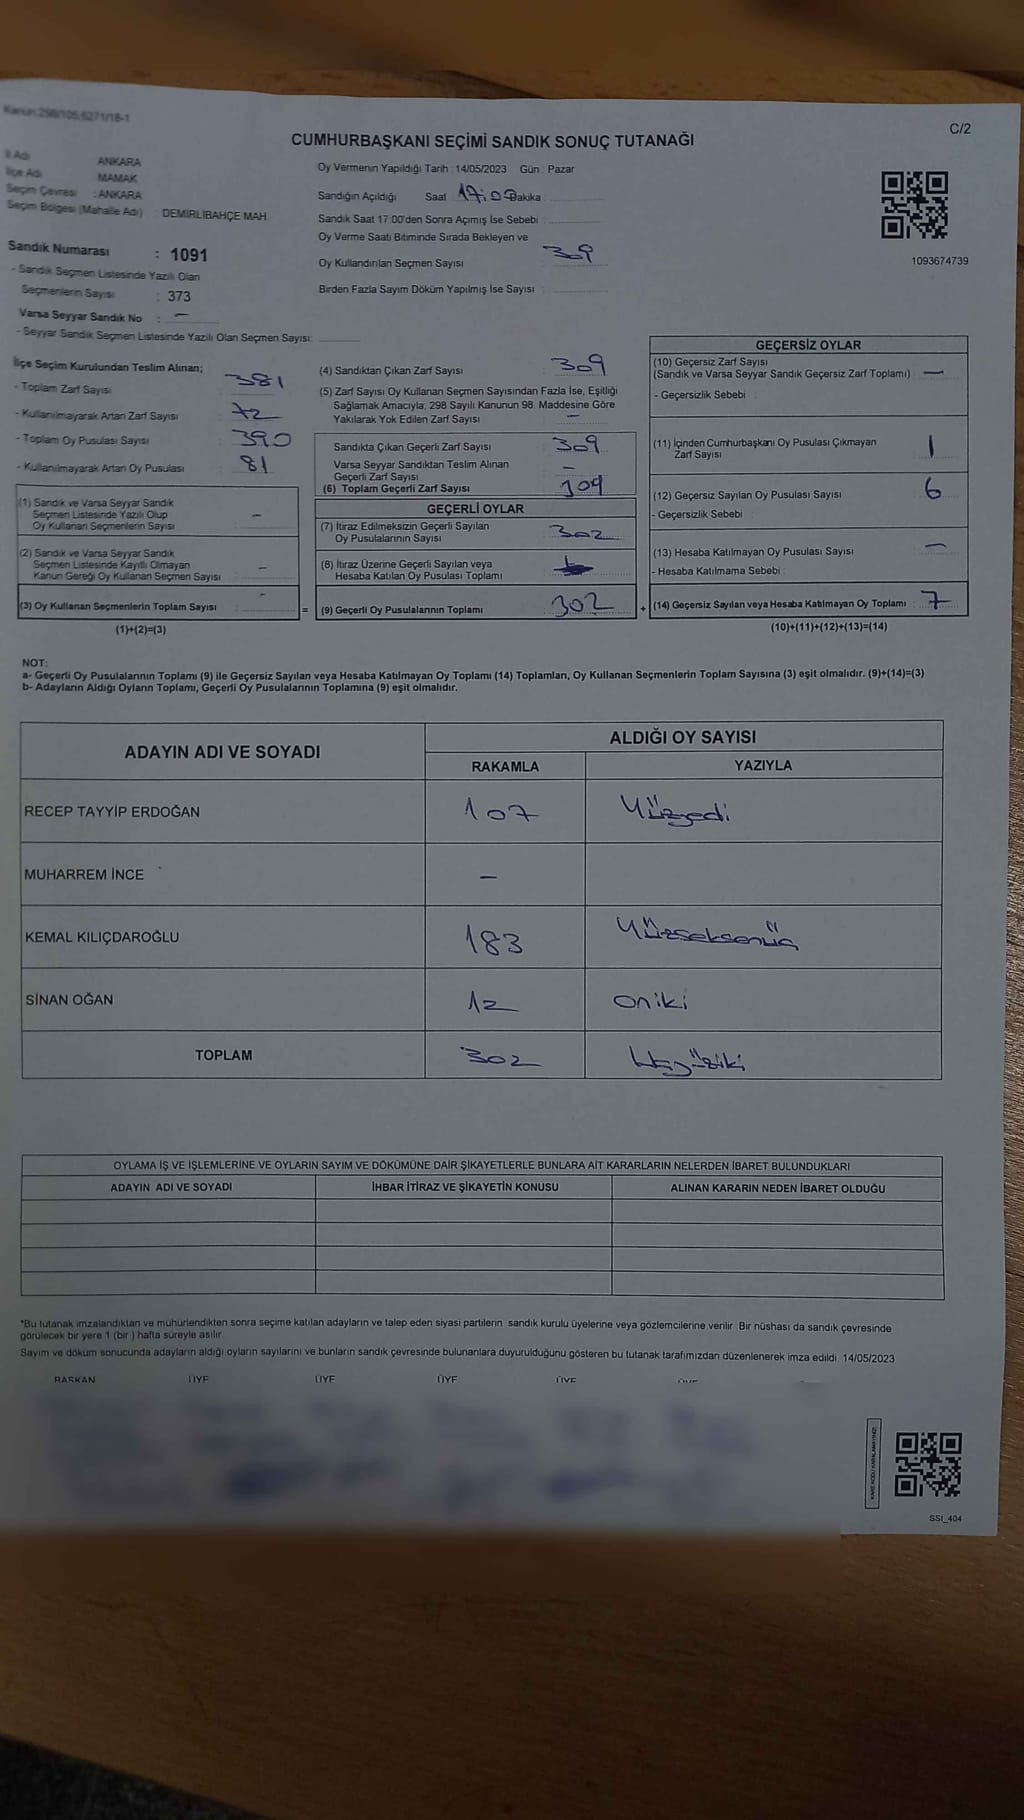 Kanun:298/105,6271/18-1
C/2
CUMHURBAŞKANI SEÇİMİ SANDIK SONUÇ TUTANAĞI
İl Adı ANKARA
İlçe Adı MAMAK
Seçim Çevresi : ANKARA
Seçim Bölgesi (Mahalle Adı) : DEMİRLİBAHÇE MAH.
Sandık Numarası : 1091
- Sandık Seçmen Listesinde Yazılı Olan
Seçmenlerin Sayısı : 373
Varsa Seyyar Sandık No : -
- Seyyar Sandık Seçmen Listesinde Yazılı Olan Seçmen Sayısı:
Oy Vermenin Yapıldığı Tarih : 14/05/2023 Gün : Pazar
Sandığın Açıldığı Saat 17:00 Dakika
Sandık Saat 17:00'den Sonra Açımış İse Sebebi :
Oy Verme Saati Bitiminde Sırada Bekleyen ve
Oy Kullandırılan Seçmen Sayısı : 309
Birden Fazla Sayım Döküm Yapılmış İse Sayısı :
1093674739
İlçe Seçim Kurulundan Teslim Alınan;
- Toplam Zarf Sayısı : 381
- Kullanılmayarak Artan Zarf Sayısı : 72
- Toplam Oy Pusulası Sayısı : 390
- Kullanılmayarak Artan Oy Pusulası : 81
(1) Sandık ve Varsa Seyyar Sandık
Seçmen Listesinde Yazılı Olup
Oy Kullanan Seçmenlerin Sayısı : -
(2) Sandık ve Varsa Seyyar Sandık
Seçmen Listesinde Kayıtlı Olmayan
Kanun Gereği Oy Kullanan Seçmen Sayısı : -
(3) Oy Kullanan Seçmenlerin Toplam Sayısı : -
(1)+(2)=(3)
=
(4) Sandıktan Çıkan Zarf Sayısı : 309
(5) Zarf Sayısı Oy Kullanan Seçmen Sayısından Fazla İse, Eşitliği
Sağlamak Amacıyla, 298 Sayılı Kanunun 98. Maddesine Göre
Yakılarak Yok Edilen Zarf Sayısı : -
Sandıkta Çıkan Geçerli Zarf Sayısı : 309
Varsa Seyyar Sandıktan Teslim Alınan
Geçerli Zarf Sayısı : -
(6) Toplam Geçerli Zarf Sayısı : 309
GEÇERLİ OYLAR
(7) İtiraz Edilmeksizin Geçerli Sayılan
Oy Pusulalarının Sayısı : 302
(8) İtiraz Üzerine Geçerli Sayılan veya
Hesaba Katılan Oy Pusulası Toplamı :
(9) Geçerli Oy Pusulalarının Toplamı : 302
+
GEÇERSİZ OYLAR
(10) Geçersiz Zarf Sayısı
(Sandık ve Varsa Seyyar Sandık Geçersiz Zarf Toplamı) : -
- Geçersizlik Sebebi :
(11) İçinden Cumhurbaşkanı Oy Pusulası Çıkmayan
Zarf Sayısı : 1
(12) Geçersiz Sayılan Oy Pusulası Sayısı : 6
- Geçersizlik Sebebi :
(13) Hesaba Katılmayan Oy Pusulası Sayısı : -
- Hesaba Katılmama Sebebi :
(14) Geçersiz Sayılan veya Hesaba Katılmayan Oy Toplamı : 7
(10)+(11)+(12)+(13)=(14)
NOT:
a- Geçerli Oy Pusulalarının Toplamı (9) ile Geçersiz Sayılan veya Hesaba Katılmayan Oy Toplamı (14) Toplamları, Oy Kullanan Seçmenlerin Toplam Sayısına (3) eşit olmalıdır. (9)+(14)=(3)
b- Adayların Aldığı Oyların Toplamı, Geçerli Oy Pusulalarının Toplamına (9) eşit olmalıdır.
ADAYIN ADI VE SOYADI
ALDIĞI OY SAYISI
RAKAMLA YAZIYLA
RECEP TAYYİP ERDOĞAN 107 Yüzyedi
MUHARREM İNCE -
KEMAL KILIÇDAROĞLU 183 Yüzseksenüç
SİNAN OĞAN 12 oniki
TOPLAM 302 üçyüziki
OYLAMA İŞ VE İŞLEMLERİNE VE OYLARIN SAYIM VE DÖKÜMÜNE DAİR ŞİKAYETLERLE BUNLARA AİT KARARLARIN NELERDEN İBARET BULUNDUKLARI
ADAYIN ADI VE SOYADI İHBAR İTİRAZ VE ŞİKAYETİN KONUSU ALINAN KARARIN NEDEN İBARET OLDUĞU
*Bu tutanak imzalandıktan ve mühürlendikten sonra seçime katılan adayların ve talep eden siyasi partilerin sandık kurulu üyelerine veya gözlemcilerine verilir. Bir nüshası da sandık çevresinde
görülecek bir yere 1 (bir ) hafta süreyle asılır.
Sayım ve döküm sonucunda adayların aldığı oyların sayılarını ve bunların sandık çevresinde bulunanlara duyurulduğunu gösteren bu tutanak tarafımızdan düzenlenerek imza edildi. 14/05/2023
BAŞKAN ÜYE ÜYE ÜYE ÜYE ÜYE
KARE KODU KARALAMAYINIZ!
SSI_404